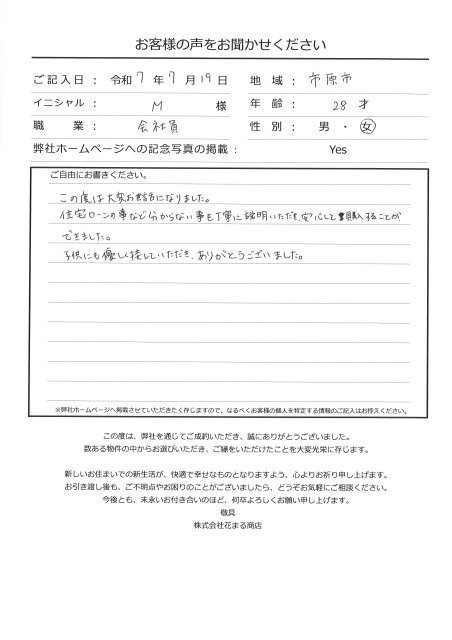 お客様の声をお聞かせください
ご記入日 : 令和 7 年 7 月 19 日 地域 : 市原市
イニシャル : M 様 年齢 : 28 才
職業 : 会社員 性別 : 男 ・ 女
弊社ホームページへの記念写真の掲載 : Yes
ご自由にお書きください。
この度は大変お世話になりました。
住宅ローンの事など分からない事も丁寧に説明いただき、安心して購入することが
できました。
子供にも優しく接していただき、ありがとうございました。
※弊社ホームページへ掲載させていただきたく存じますので、なるべくお客様の個人を特定する情報のご記入はお控えください。
この度は、弊社を通じてご成約いただき、誠にありがとうございました。
数ある物件の中からお選びいただき、ご縁をいただけたことを大変光栄に存じます。
新しいお住まいでの新生活が、快適で幸せなものとなりますよう、心よりお祈り申し上げます。
お引き渡し後も、ご不明点やお困りのことがございましたら、どうぞお気軽にご相談ください。
今後とも、末永いお付き合いのほど、何卒よろしくお願い申し上げます。
敬具
株式会社花まる商店